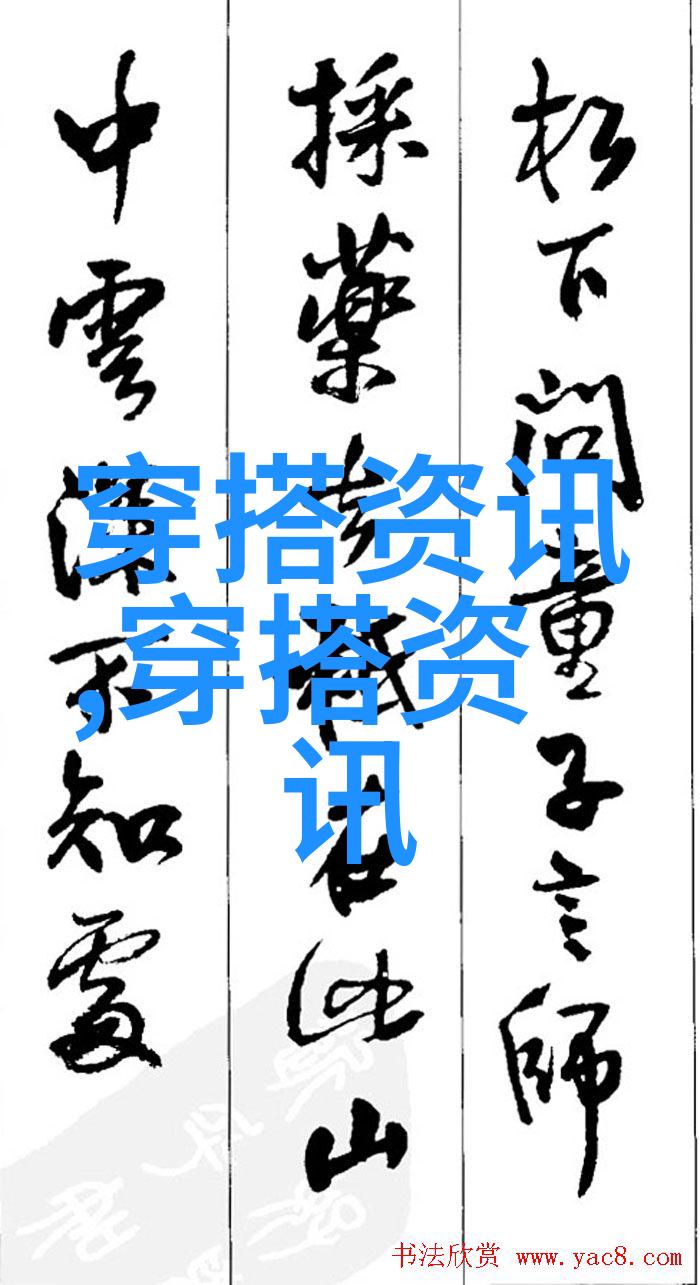 松下問童子言師
採藥去在此山
中雲深不知處
穿搭资讯
,穿搭资
讯
书法欣赏 www.yac8.com